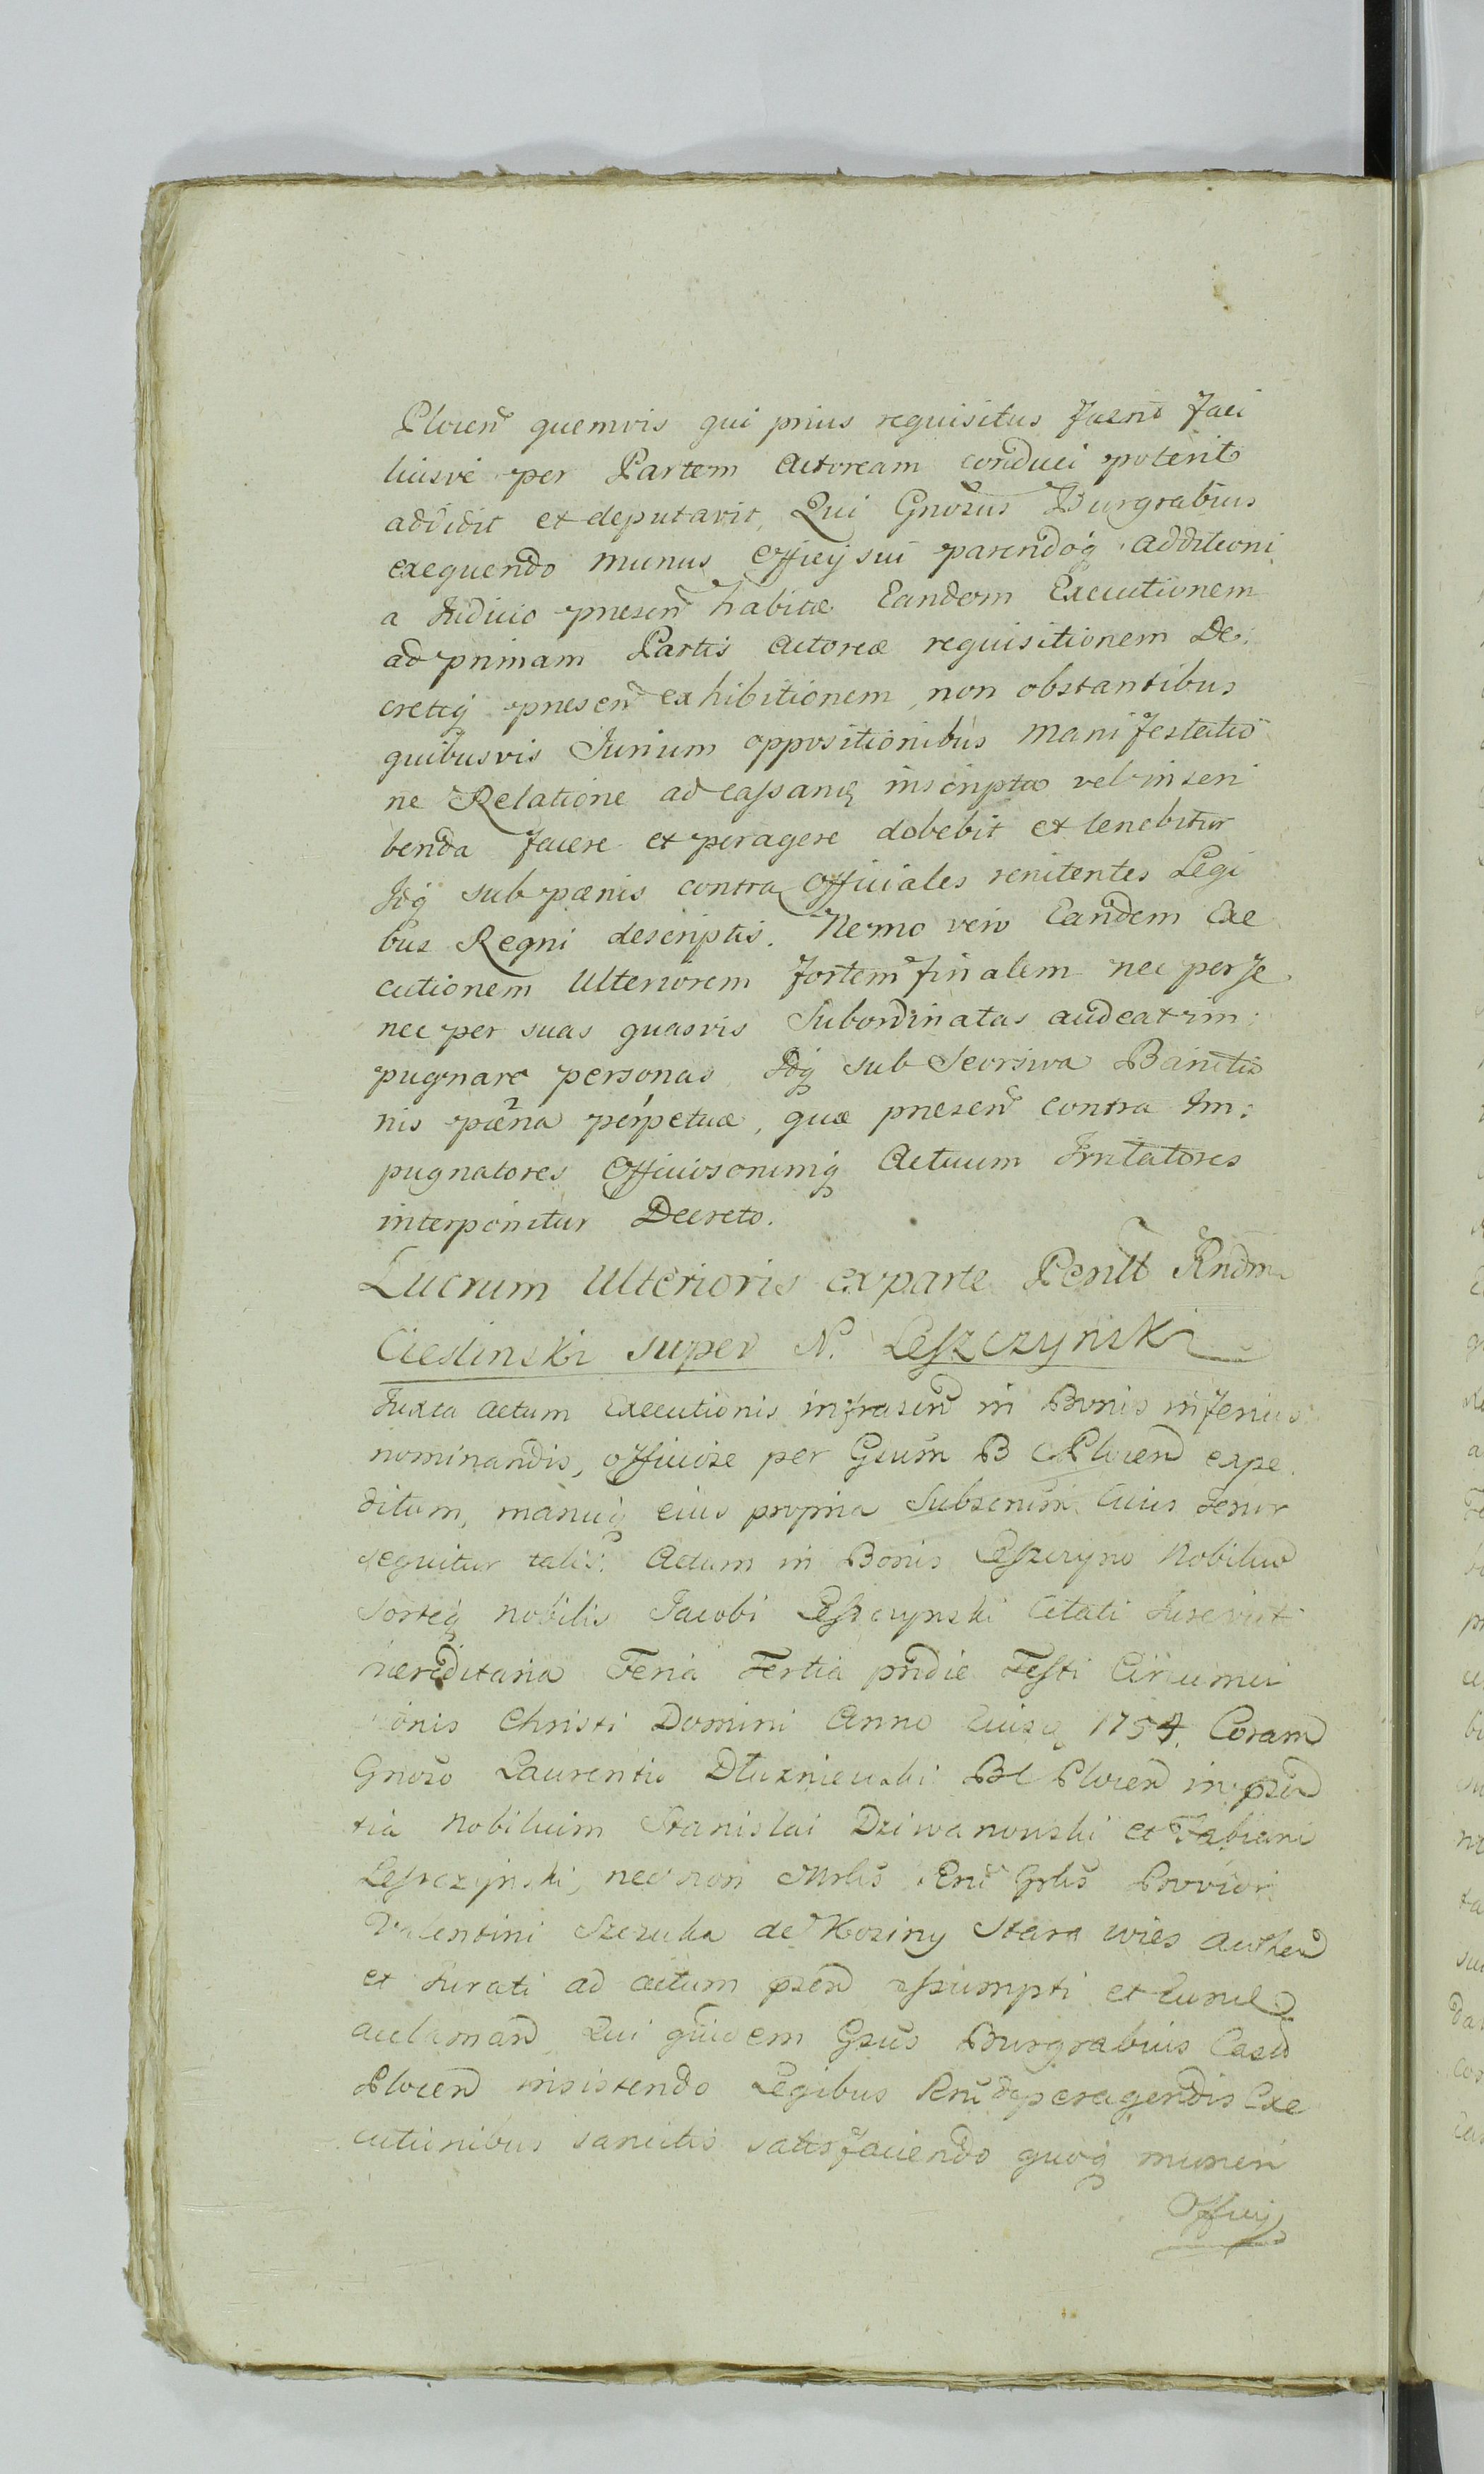 Plocen quemvis qui prius requisitus fuerit faci
liusve per Partem Actoream conduci poterit
addidit et deputavit, Qui Gnosus Burgrabius
exequendo munus Officij sui parendoq additioni
a Judicio presen habitæ Eandem Executionem
ad primam Partis Actoreæ requisitionem De:
cretiq presen exhibitionem, non obstantibus
quibusvis Jurium oppositionibus manifestatio
ne Relatione ad cassanq inscripta vel inscri
benda facere et peragere debebit et tenebitur
Idq sub pœnis contra Officiales renitentes Legi
bus Regni descriptis. Nemo vero Eandem Exe
cutionem Ulteriorem fortem finalem nec per se
nec per suas quasvis Subordinatas audeat im:
pugnare personas, Idq sub Seorsiva Bannitio
nis pœna perpetuæ, quæ presen contra Im:
pugnatores Officiosorumq Actuum Irritatores
interponitur Decreto.
Lucrum Ulterioris ex parte Penltt Rndm
Cieslinski super N. Leszczynski
Juxta Actum Executionis infrascrn in Bonis inferius
nominandis, officiose per Gsum B C Plocen expe
ditum, manuq eius propria Subscrum Cuius Tenor
sequitur talis: Actum in Bonis Leszczyno Nobilium
Sorteq nobilis Jacobi Leszczynski Citati Jurevit
hereditaria Feria Tertia pridie Festi Circumci
ionis Christi Domini Anno Eiusq 1754. Coram
Gnoso Laurentio Dłuzniewski BC Plocen in psen
tia Nobilium Stanislai Dziwanowski et Fabiani
Leszczynski, nec non Mrlis Rni Grlis Provior
Valentini Szczuka de Koziny Stara wies Authen
et Jurati ad actum psen assumpti et
acclaman Qui quidem Gsus Burgrabius Casn
Plocen insistendo Legibus Rni de peragendis Exe
cutionibus sancitis satisfaciendo quoq muneri
Officij